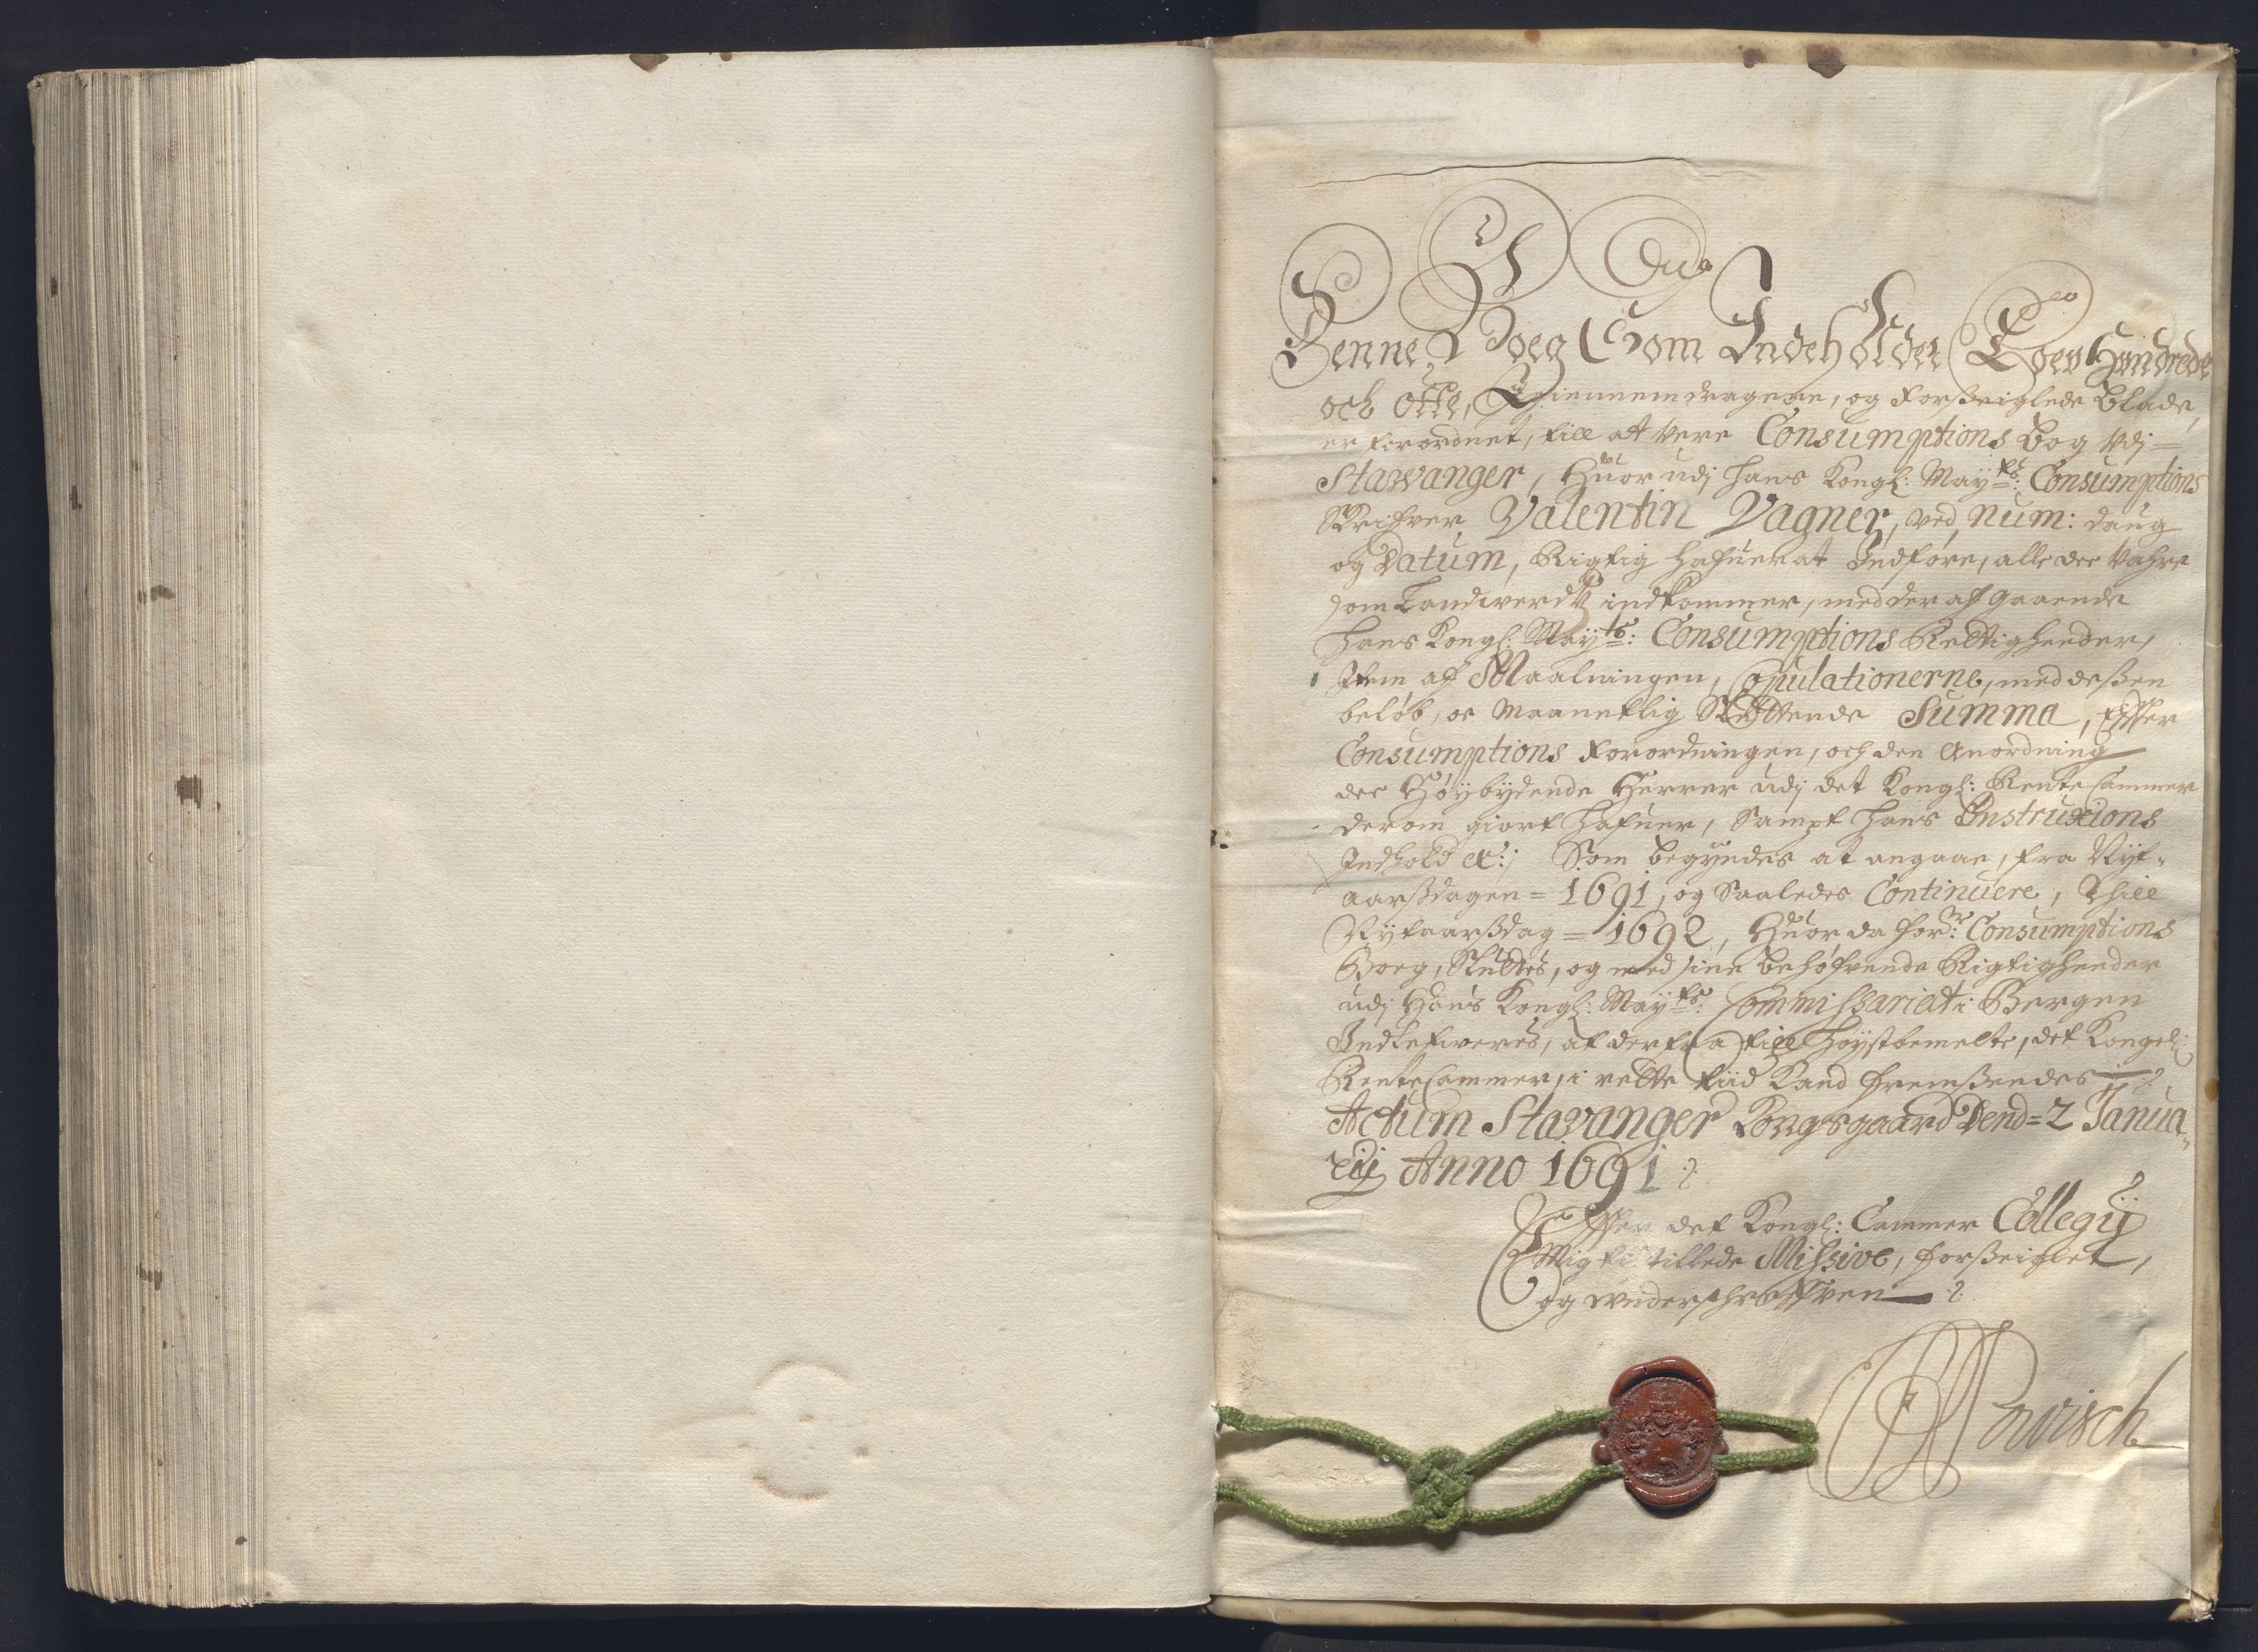 Denne Boeg Som Indeholder Toe Hundrede
och Otte, Igiennemdragene, og Forßeiglede Blade,
er forordnet, till at Vere Consumptions Bog Vdj
Stawanger, Huor udj Hans Kongl: Maytz: Consumptions
Skrifver Valentin Vagner, ved Num: daug
og Datum, Rigtig hafuer at Indføre, alle dee Vahre
som Landwerdtz indkommer, med der af gaaende
Hans Kongl: Maytz: Consumptions Rettigheeder,
Item af Maalningen, Copulationerne, med deßen
beløb, oc Maanetlig Sluttende Summa, Effter
Consumptions Forordningen, och den Anordning
dee Høybydende Herrer udj det Kongl: Rente Cammer
derom giort hafuer, Sampt hans Instruxions
Indhold &c:; Som begyndes at angaae, fra Nyt-
aarßdagen = 1691, og Saaledes Continuere, Thill
Nytaarßdag = 1692, Huor da forde: Consumptions
Boeg, Sluttes, og med sine behøfvende Rigtigheeder
udj Hans Kongl: Maytz: Commissariat i Bergen
Indlefweres, at derfra till Høystbemelte, det Kongel:
Rente Cammer, i rette tiid Kand fremßendes
Actum Stavanger Kongsgaard Dend = 2 Janua
rij Anno 1691
Effter det Kongl: Cammer Collegij
Mig tillede Missive, forßeiglet,
og underschreffven